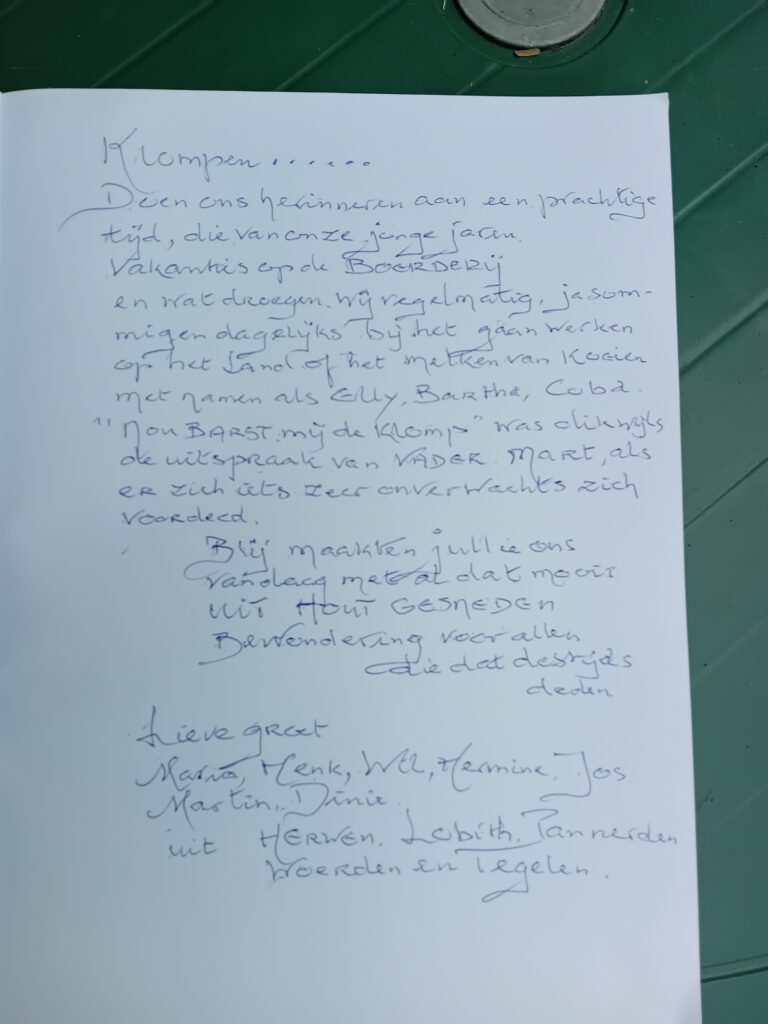 Klompen......
Doen ons herinneren aan een prachtige
tijd, die van onze jonge jaren.
Vakantis op de BOERDERIJ
en wat droegen wij regelmatig, ja som-
migen dagelijks bij het gaan werken
op het land of het melken van Koeien
met namen als Elly, Bartha, Coba.
"Nou BARST mij de KLOMP" was dikwijls
de uitspraak van VADER MART, als
er zich iets zeer onverwachts zich
voordeed.
Blij maakten jullie ons
vandaag met al dat moois
UIT HOUT GESNEDEN
Bewondering voor allen
die dat destijds
deden
Lieve groet
Maria, Henk, Wil, Hermine, Jos
Martin, Dinie.
uit HERWEN, Lobith, Pannerden
Woerden en Tegelen.